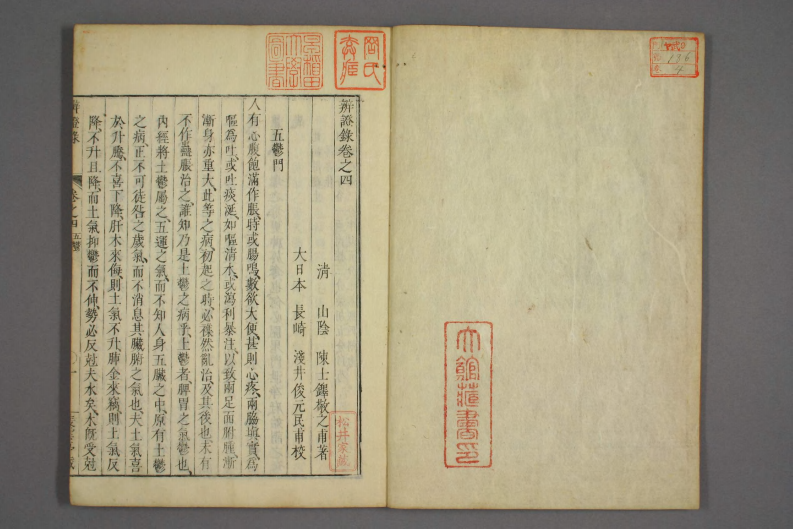 辨證錄卷之四
清 山陰 陳士鐸敬之甫著
大日本 長崎 淺井俊元民甫校
五鬱門
人有心腹飽滿作脹、時或腸鳴、數欲大便、甚則心疼、兩脇填實、爲
嘔爲吐、或吐痰涎、如嘔清水、或瀉利暴注、以致兩足面胕腫、漸
漸身亦重大、此等之病、初起之時、必雜然亂治、及其後也、未有
不作蠱脹治之、誰知乃是土鬱之病乎、土鬱者、脾胃之氣鬱也、
內經將土鬱屬之五運之氣、而不知人身五臟之中、原有土鬱
之病、正不可徒咎之歲氣、而不消息其臟腑之氣也、夫土氣喜
於升騰、不喜下降、肝木來侮、則土氣不升、肺金來竊、則土氣反
降、不升且降、而土氣抑鬱而不伸、勢必反尅夫水矣、水旣受尅
辨證錄 卷之四 五鬱
松井家藏
136
4